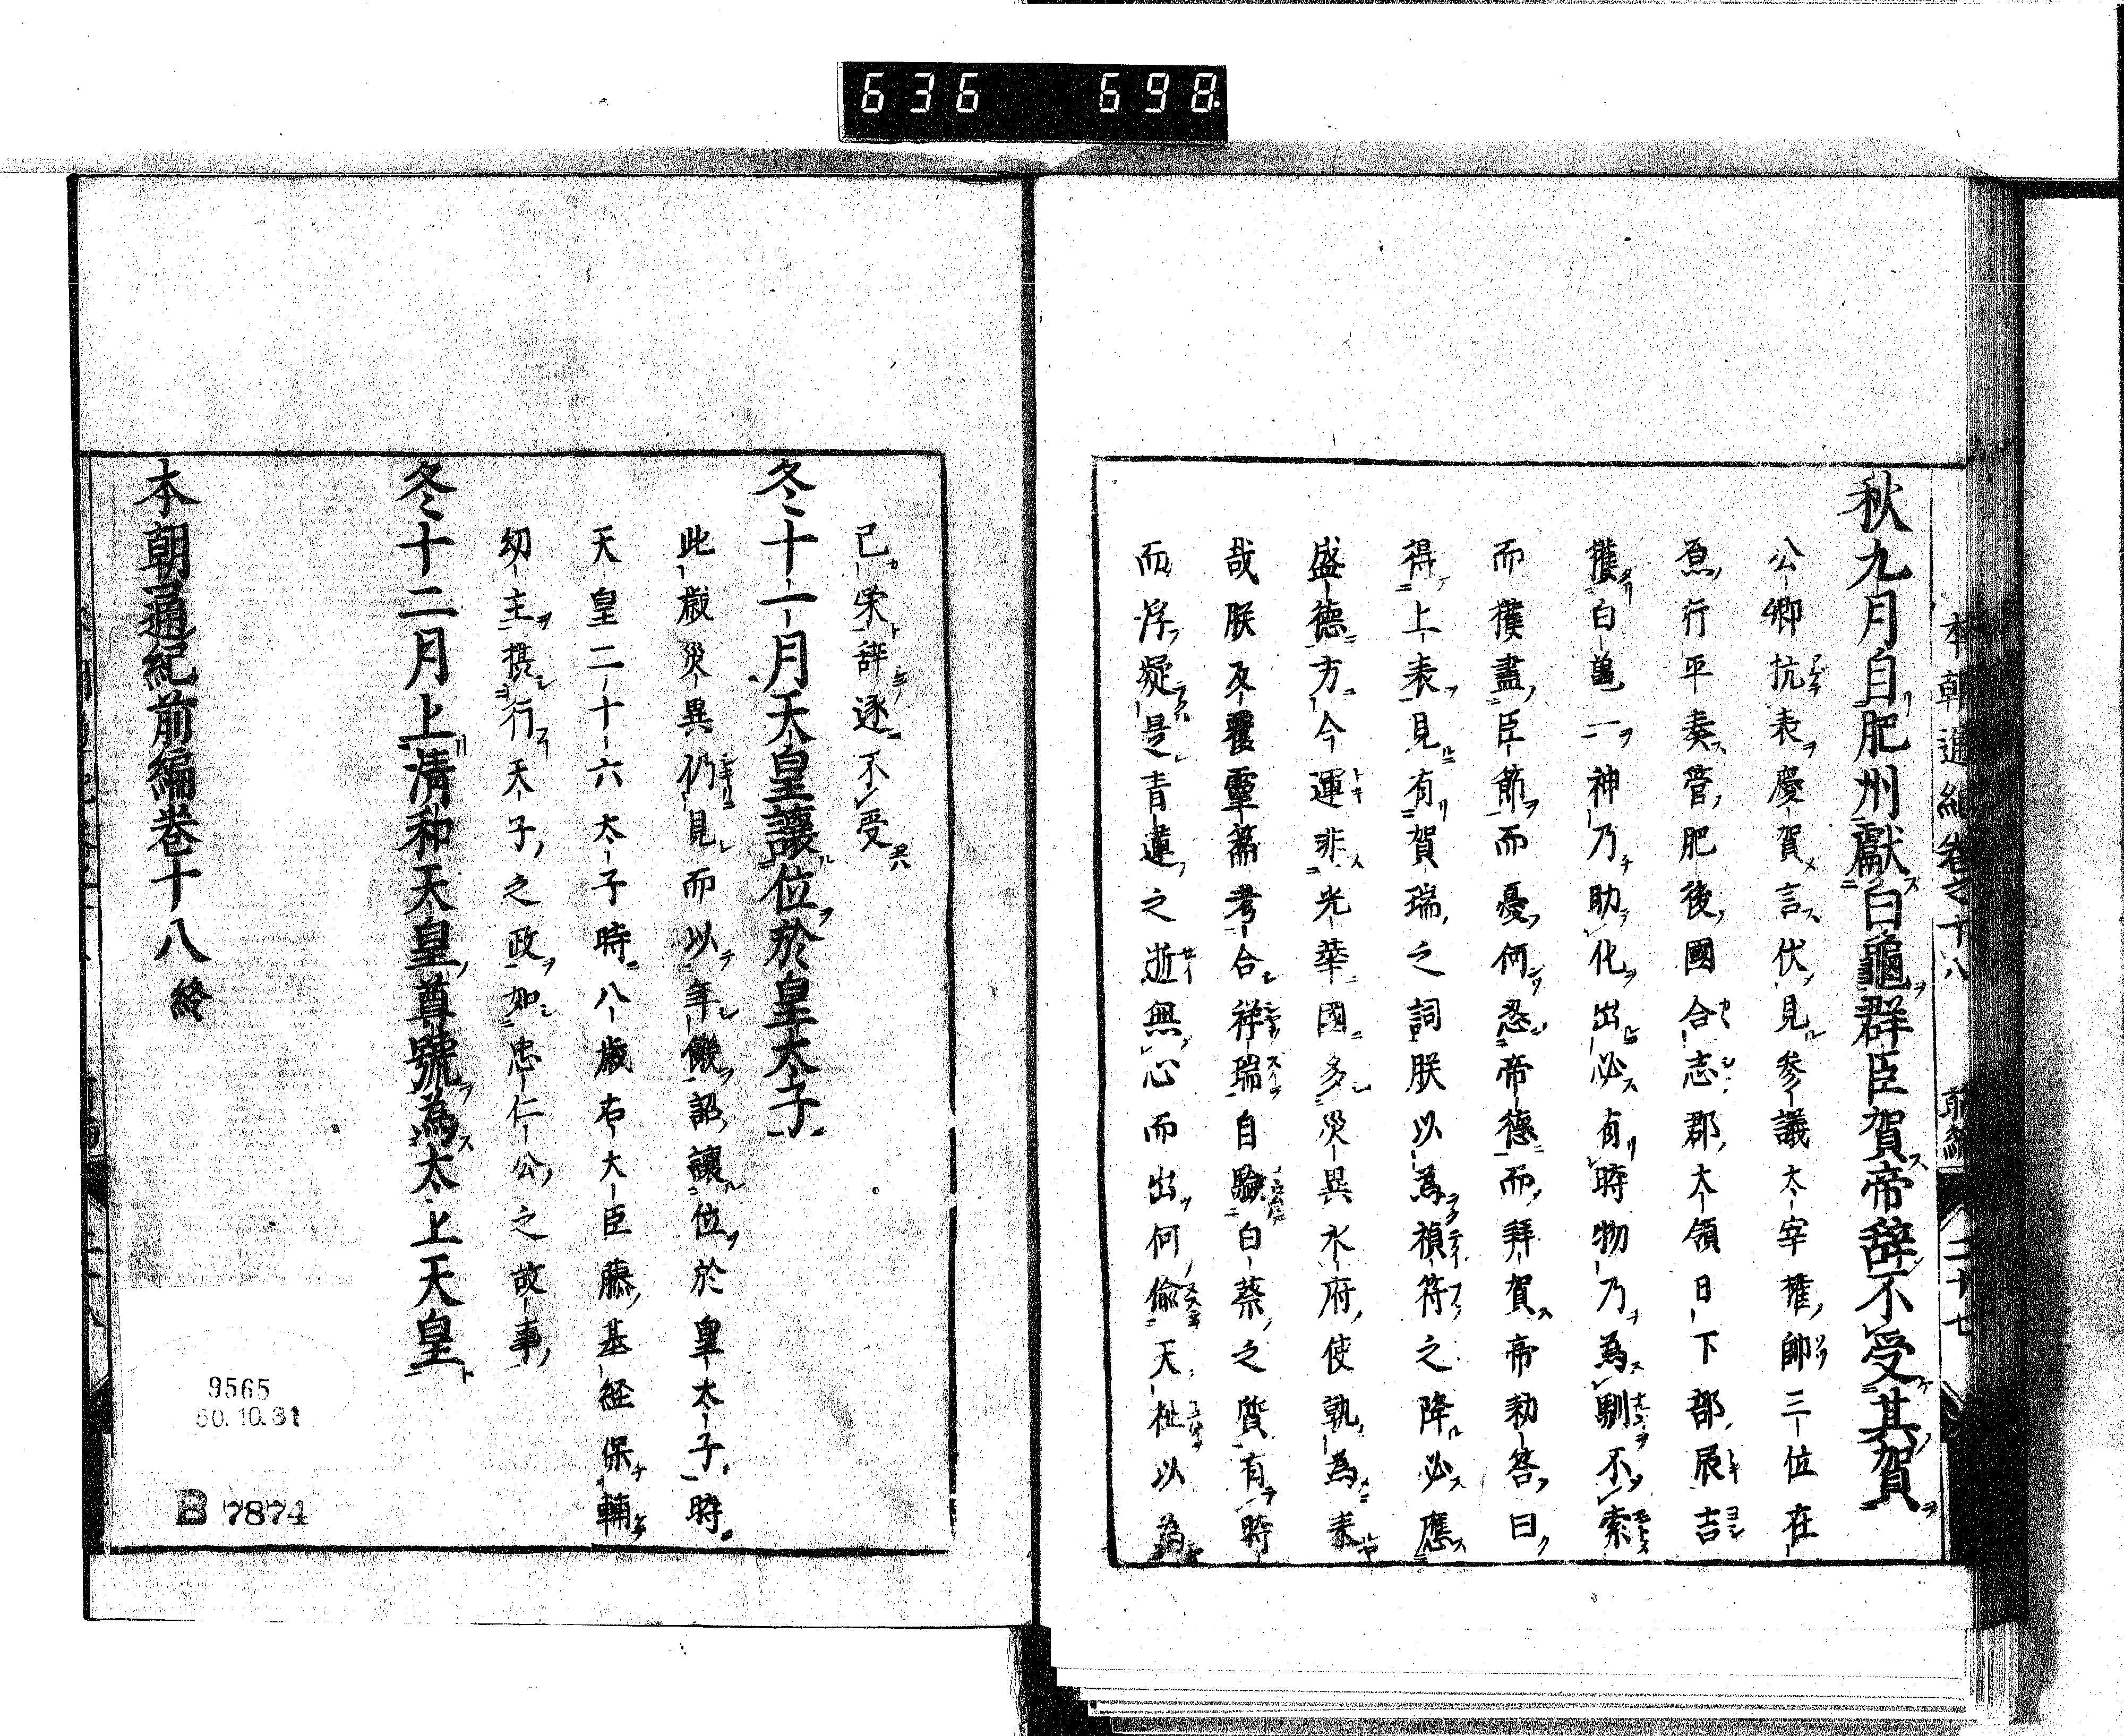 636 698
本朝通紀卷之十八 前編 二十七
秋九月自肥州獻白龜群臣賀帝辞不受其賀
公卿抗表慶賀言伏見參議太宰権帥三位在
原行平奏管肥後國合志郡大領日下部辰吉
獲白亀一神乃助化出必有時物乃為馴不索
而獲盡臣節而憂何忍帝德而拜賀帝勅答曰
得上表見有賀瑞之詞朕以為禎符之降必應
盛德方今運非光華國多災異水府使執為来
哉朕反覆霊篇考合祥瑞自驗白蔡之質有時
而浮疑是青蓮之逝無心而出何偸天祉以為
己栄辞逐不受
冬十一月天皇讓位於皇太子
此歳災異仍見而以年饑詔讓位於皇太子時
天皇二十六太子時八歳右大臣藤基経保輔
幼主摂行天子之政如忠仁公之故事
冬十二月上清和天皇尊號為太上天皇
本朝通紀前編卷十八終
9565
50.10.31
B 7874